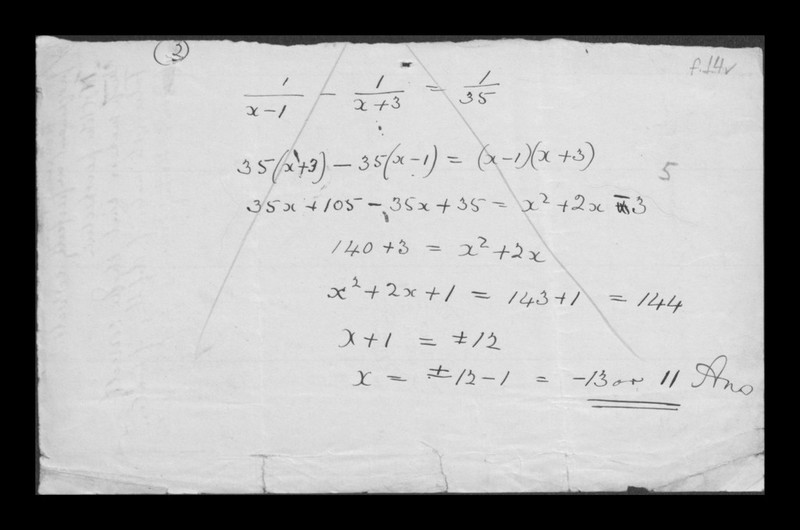 (2)
f.14v
1/(x-1) - 1/(x+3) = 1/35
35(x+3) - 35(x-1) = (x-1)(x+3)
5
35x + 105 - 35x + 35 = x² + 2x - 3
140 + 3 = x² + 2x
x² + 2x + 1 = 143 + 1 = 144
x + 1 = ±12
x = ±12 - 1 = -13 or 11 Ans